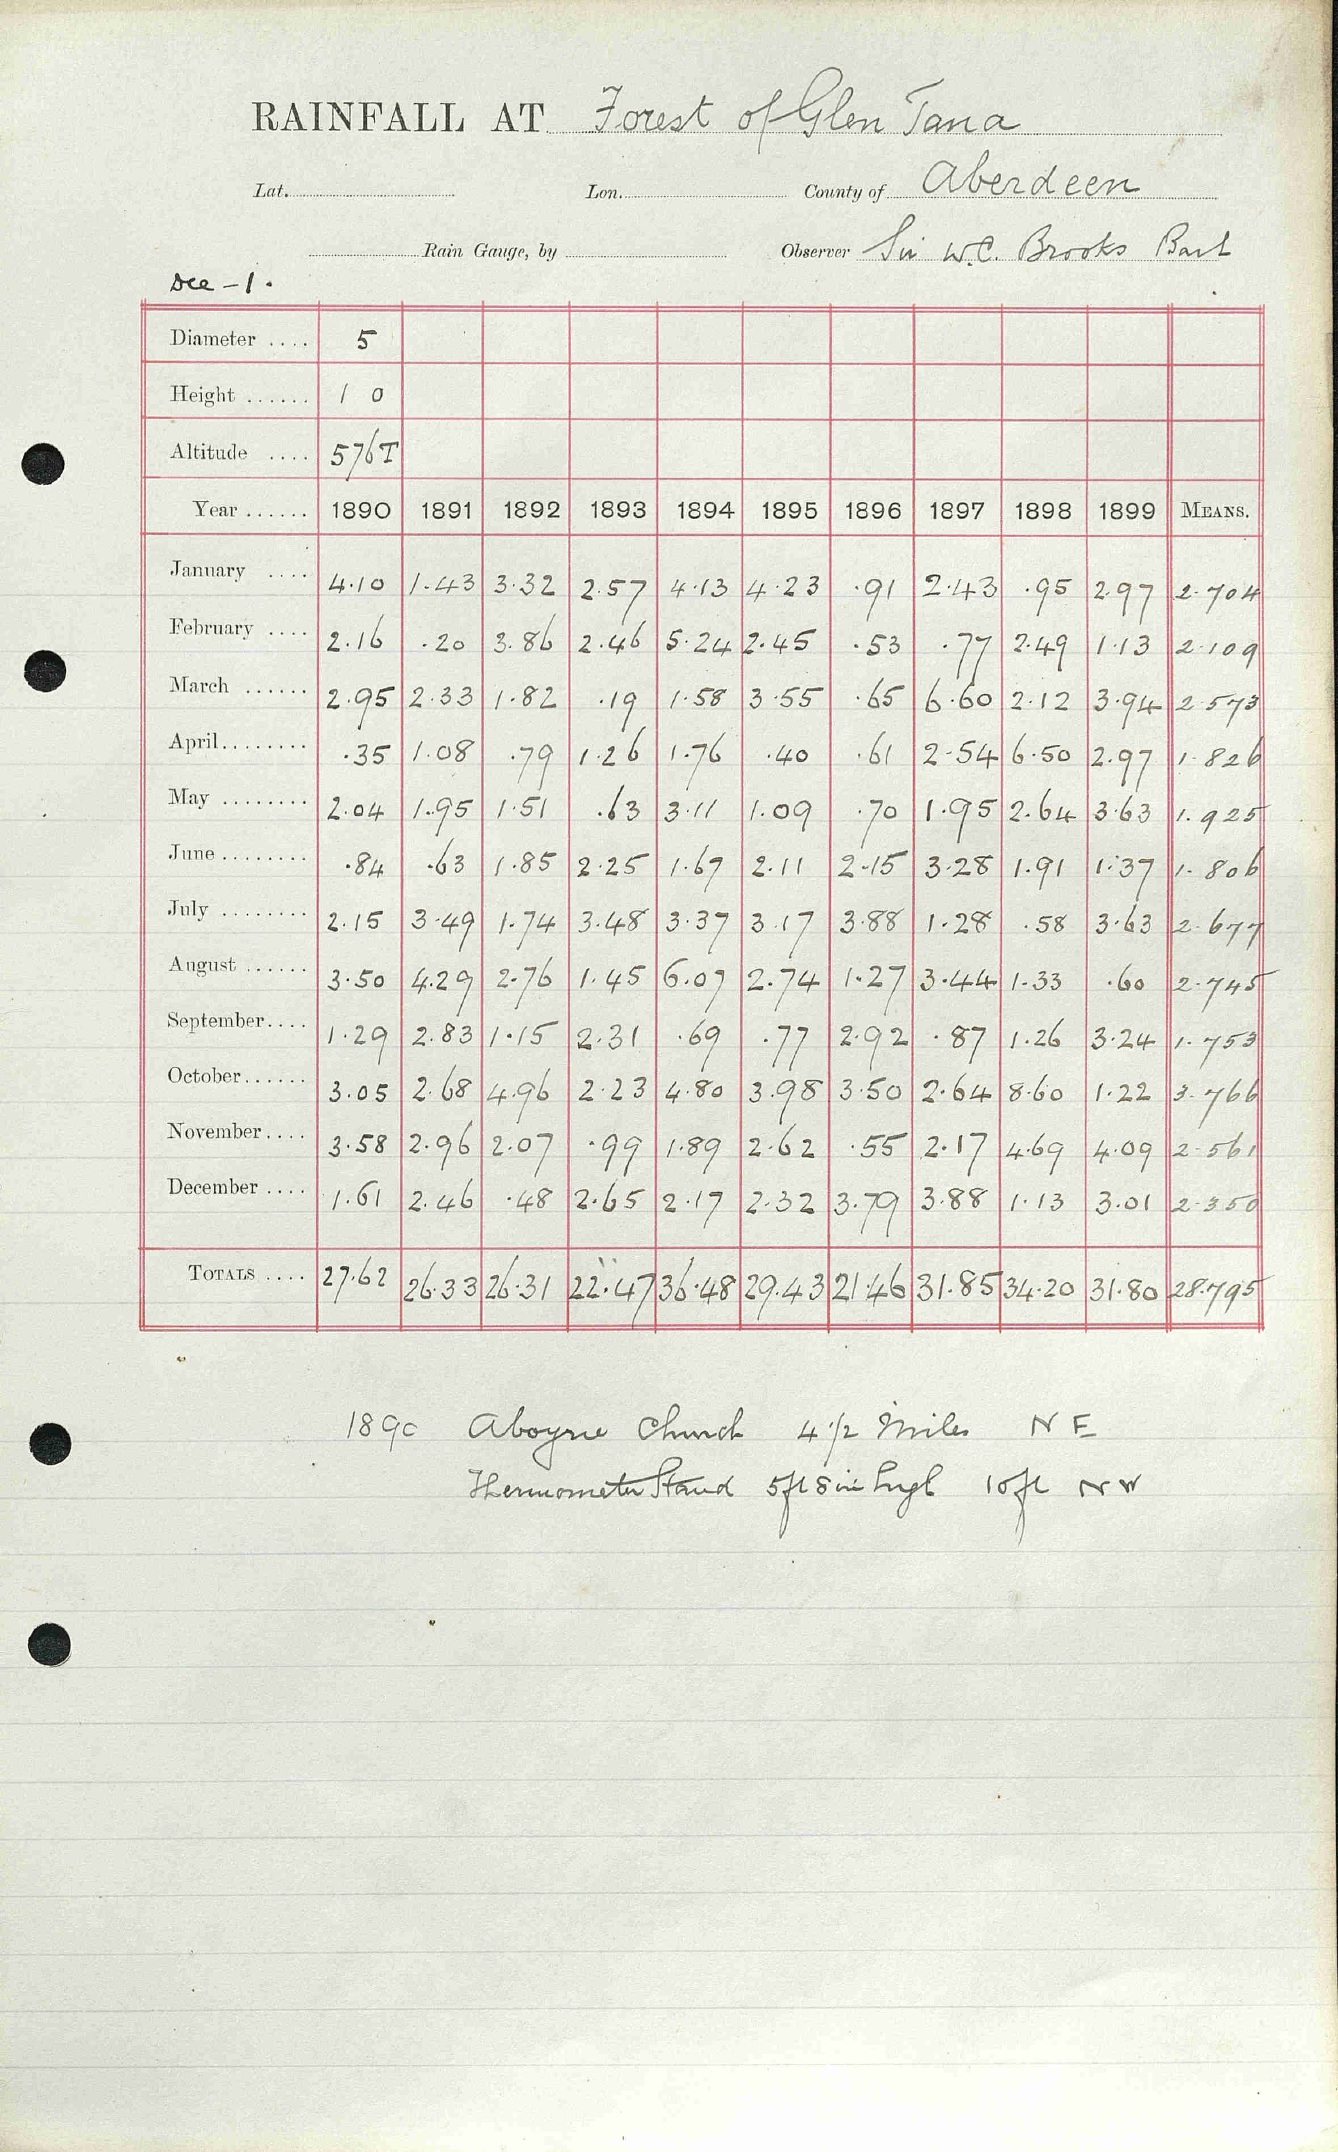 RAINFALL AT Forest of Glen Tana
Lat. Lon. County of Aberdeen
Rain Gauge, by Observer Sir W.C. Brooks Bart
Dee - 1.
Diameter .... 5
Height ...... 1 0
Altitude .... 576T
Year ...... 1890 1891 1892 1893 1894 1895 1896 1897 1898 1899 MEANS.
January .... 4.10 1.43 3.32 2.57 4.13 4.23 .91 2.43 .95 2.97 2.704
February .... 2.16 .20 3.86 2.46 5.24 2.45 .53 .77 2.49 1.13 2.109
March ...... 2.95 2.33 1.82 .19 1.58 3.55 .65 6.60 2.12 3.94 2.573
April........ .35 1.08 .79 1.26 1.76 .40 .61 2.54 6.50 2.97 1.826
May ........ 2.04 1.95 1.51 .63 3.11 1.09 .70 1.95 2.64 3.63 1.925
June ........ .84 .63 1.85 2.25 1.67 2.11 2.15 3.28 1.91 1.37 1.806
July ........ 2.15 3.49 1.74 3.48 3.37 3.17 3.88 1.28 .58 3.63 2.677
August ...... 3.50 4.29 2.76 1.45 6.07 2.74 1.27 3.44 1.33 .60 2.745
September.... 1.29 2.83 1.15 2.31 .69 .77 2.92 .87 1.26 3.24 1.753
October...... 3.05 2.68 4.96 2.23 4.80 3.98 3.50 2.64 8.60 1.22 3.766
November.... 3.58 2.96 2.07 .99 1.89 2.62 .55 2.17 4.69 4.09 2.561
December .... 1.61 2.46 .48 2.65 2.17 2.32 3.79 3.88 1.13 3.01 2.350
TOTALS .... 27.62 26.33 26.31 22.47 36.48 29.43 21.46 31.85 34.20 31.80 28.795
1890 Aboyne Church 4 1/2 Miles N E
Thermometer Stand 5ft 8in high 10ft N W